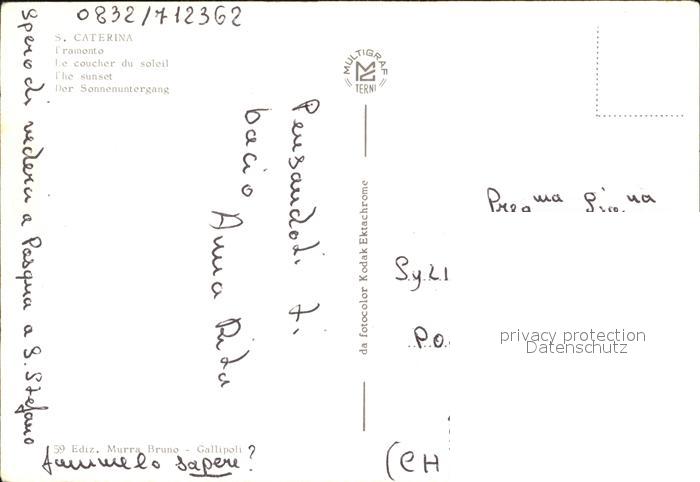 0832/712362
S. CATERINA
Tramonto
Le coucher du soleil
The sunset
Der Sonnenuntergang
Pensandoti ti
bacio
Anna Rita
Spero di vederci a Pasqua a S. Stefano
fammelo sapere?
59 Ediz. Murra Bruno - Gallipoli
MULTIGRAF
TERNI
da fotocolor Kodak Ektachrome
privacy protection
Datenschutz
(CH